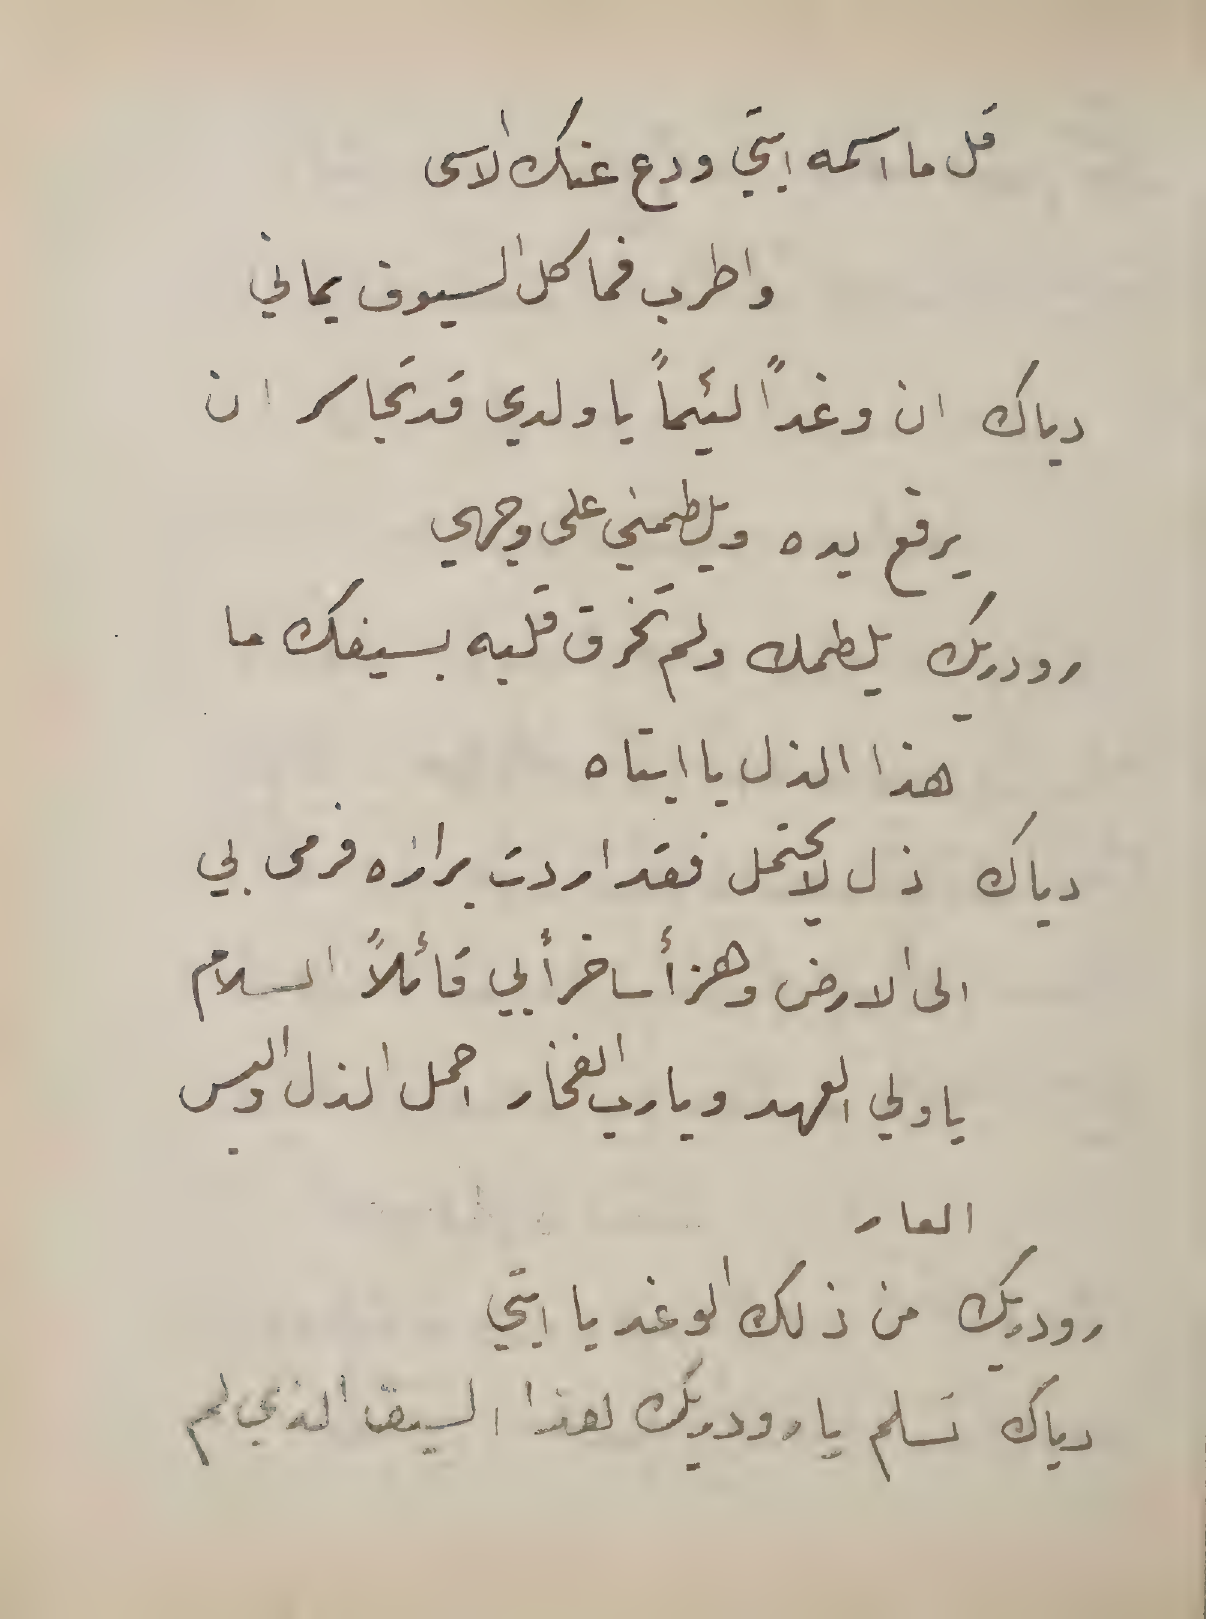 قل ما اسمه ابتي ودع عنك الاسى
واطرب فما كل السيوف يماني
دياك ان وغداً لئيماً يا ولدي قد تجاسر ان
يرفع يده ويلطمني على وجهي
رودريك يلطمك ولم تخرق قلبه بسيفك ما
هذا الذل يا ابتاه
دياك ذل لا يحتمل فقد اردت برازه فرمى بي
الى الارض وهزأ ساخراً بي قائلاً السلام
يا ولي العهد ويا رب الفخار احمل الذل والبس
العار
رودريك من ذلك الوغد يا ابتي
دياك تسلم يا رودريك هذا السيف الذي لم